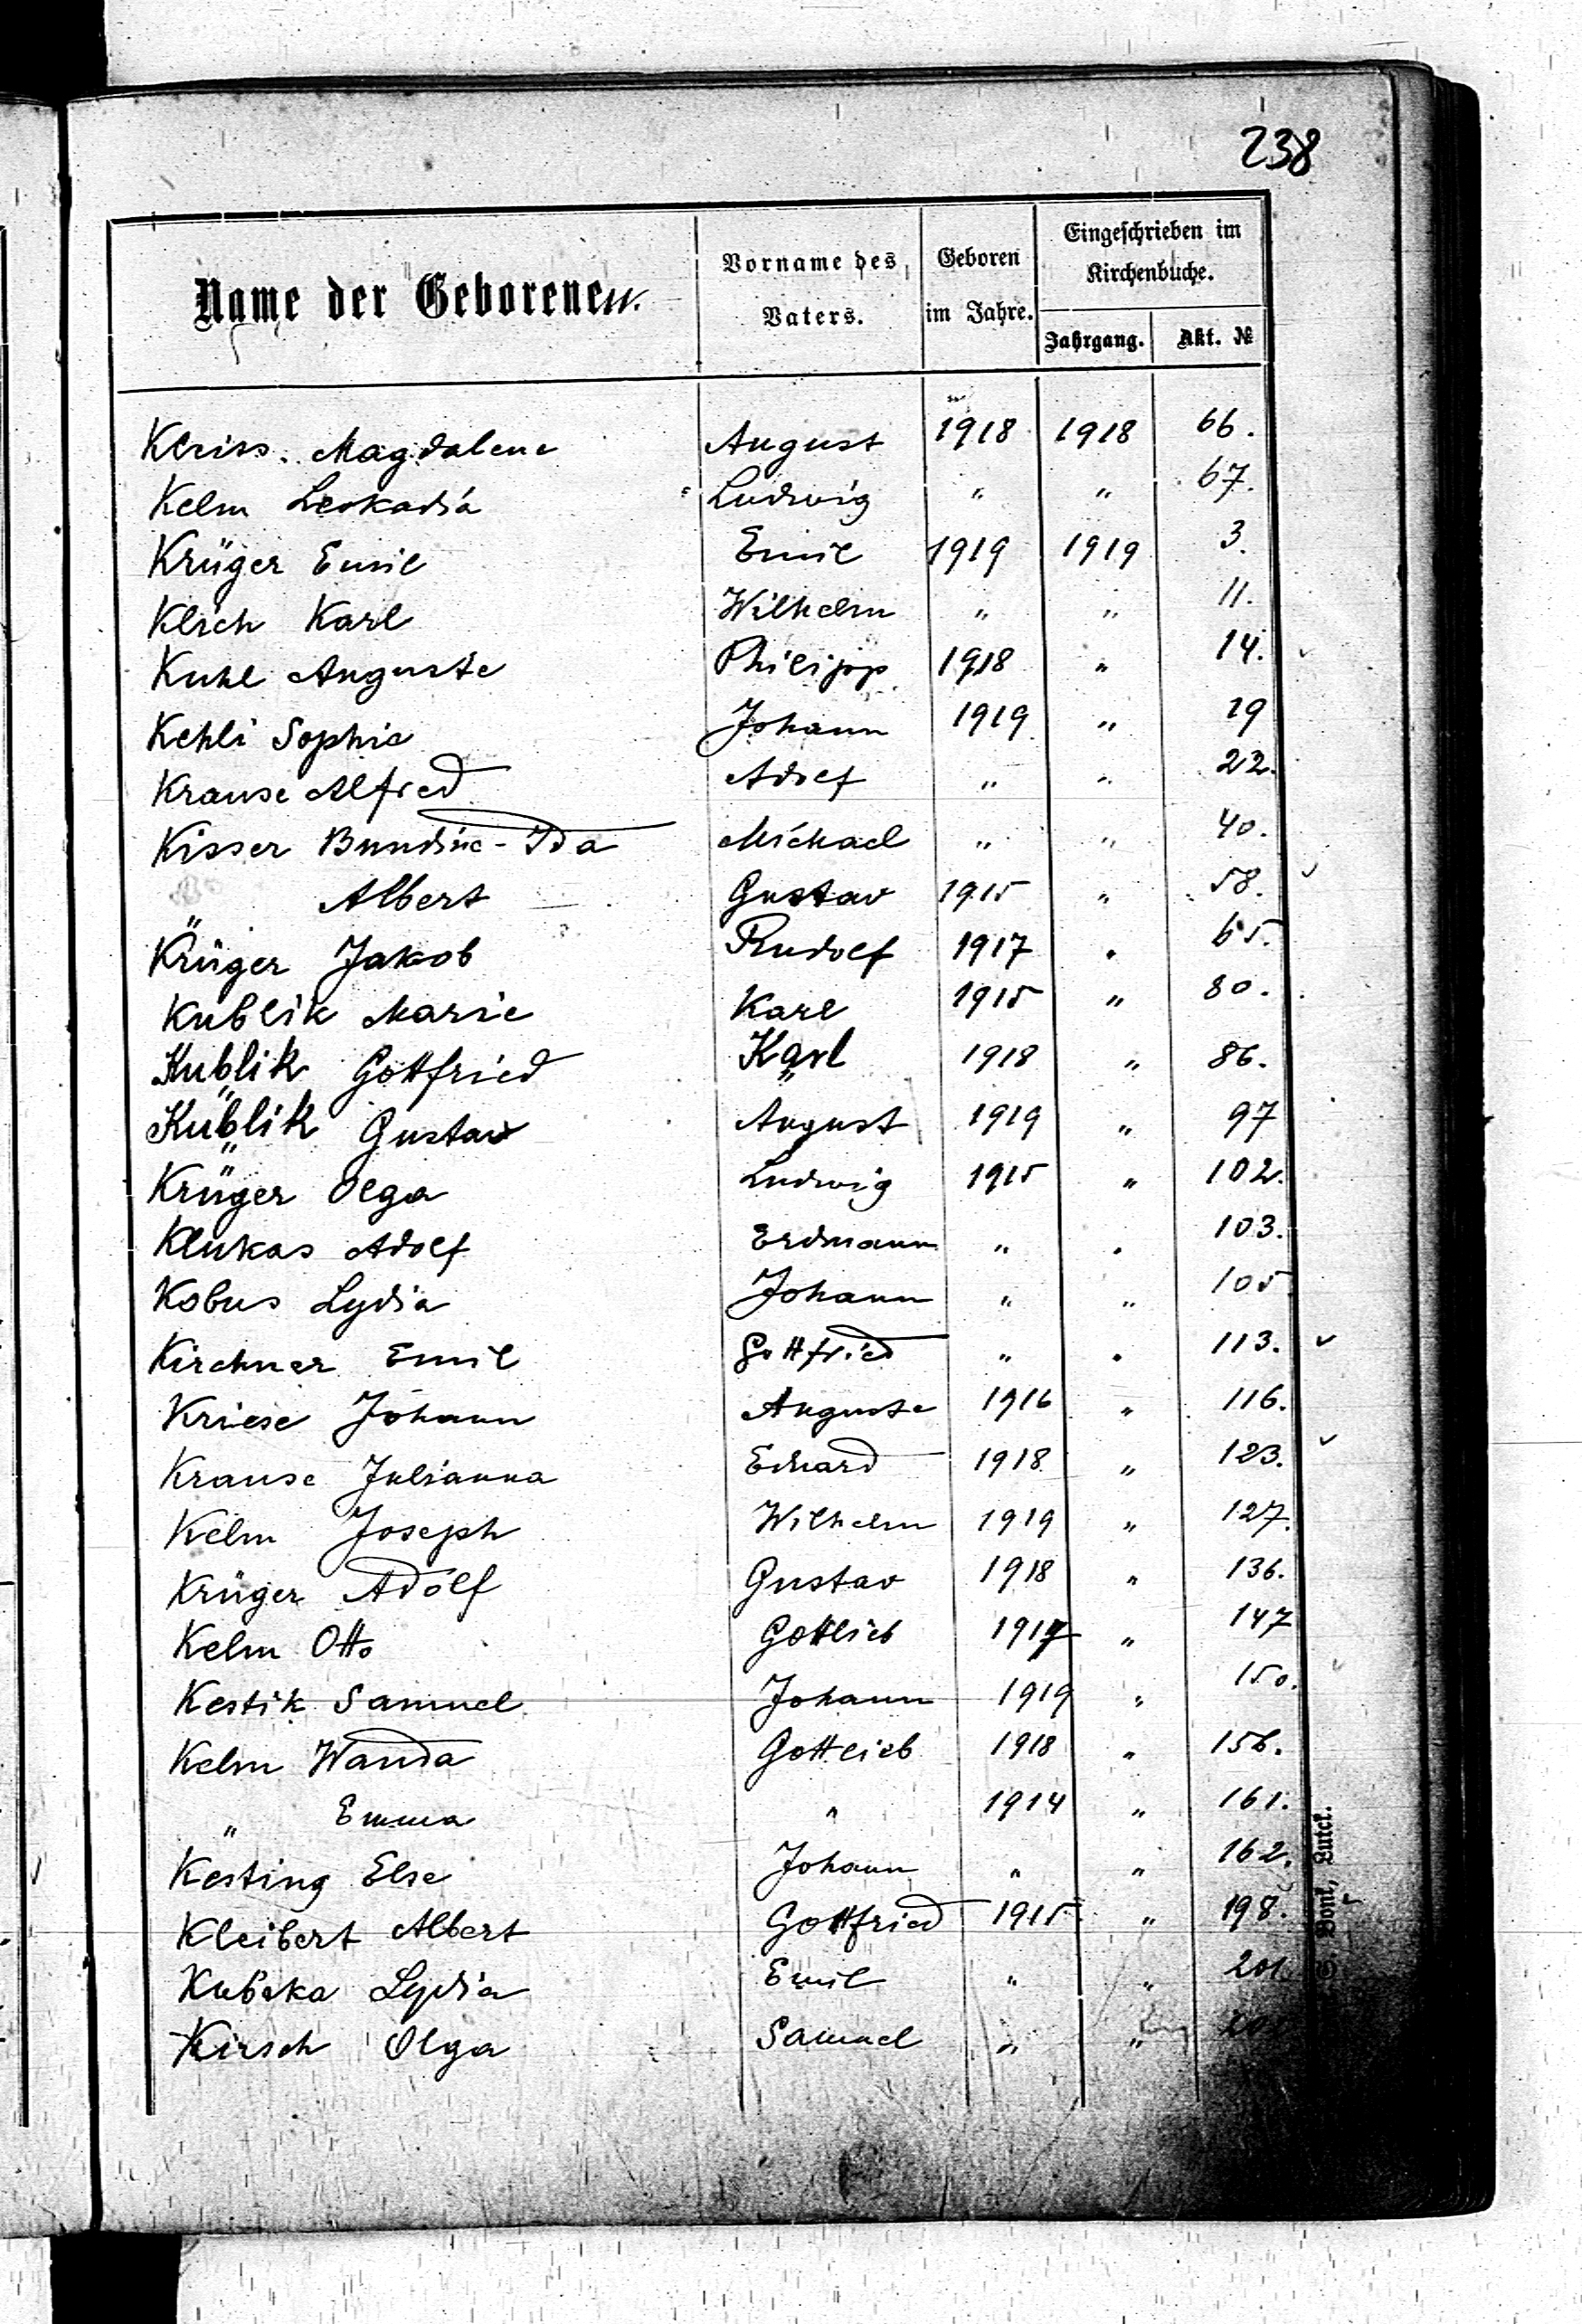 238
Name der Geborenen.
Vorname des Vaters.
Geboren im Jahre.
Eingeschrieben im Kirchenbuche.
Jahrgang. Akt. №
Kleiss. Magdalene August 1918 1918 66.
Kelm Leokadia Ludwig " " 67.
Krüger Emil Emil 1919 1919 3.
Klich Karl Wilhelm " " 11.
Kuhl Auguste Philipp 1918 " 14.
Kehli Sophie Johann 1919 " 19
Krause Alfred Adolf " " 22.
Kisser Bundine-Ida Michael " " 40.
" Albert Gustav 1915 " 58.
Krüger Jakob Rudolf 1917 " 65.
Kublik Marie Karl 1915 " 80.
Kublik " Gottfried Karl " 1918 " 86.
Kublik " Gustav August 1919 " 97
Krüger Olga Ludwig 1915 " 102.
Klukas Adolf Erdmann " " 103.
Kobus Lydia Johann " " 105
Kirchner Emil Gottfried " " 113.
Kriese Johann Auguste 1916 " 116.
Krause Julianna Eduard 1918 " 123.
Kelm Joseph Wilhelm 1919 " 127.
Krüger Adolf Gustav 1918 " 136.
Kelm Otto Gottlieb 1917 " 147
Kestik Samuel Johann 1919 " 150.
Kelm Wanda Gottlieb 1918 " 156.
" Emma " 1914 " 161.
Kesting Else Johann " " 162.
Kleibert Albert Gottfried 1915 " 198.
Kubska Lydia Emil " " 201.
Kirsch Olga Samuel " "